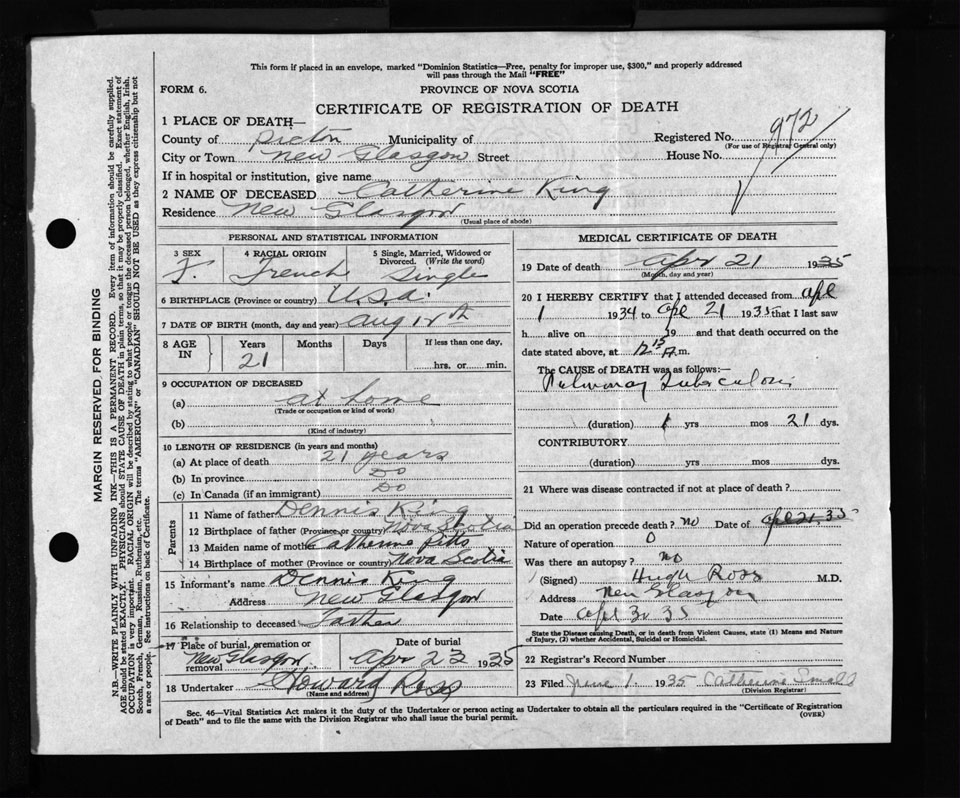 This form if placed in an envelope, marked "Dominion Statistics—Free, penalty for improper use, $300," and properly addressed
will pass through the Mail "FREE"
FORM 6.
PROVINCE OF NOVA SCOTIA
CERTIFICATE OF REGISTRATION OF DEATH
1 PLACE OF DEATH—
County of Pictou Municipality of Registered No. 972
(For use of Registrar General only)
City or Town New Glasgow Street House No.
If in hospital or institution, give name
2 NAME OF DECEASED Catherine King
Residence New Glasgow
(Usual place of abode)
PERSONAL AND STATISTICAL INFORMATION
3 SEX 4 RACIAL ORIGIN 5 Single, Married, Widowed or Divorced. (Write the word)
F. French Single
6 BIRTHPLACE (Province or country) U.S.A.
7 DATE OF BIRTH (month, day and year) Aug
8 AGE IN Years Months Days If less than one day,
21 hrs. or min.
9 OCCUPATION OF DECEASED
(a) at home
(Trade or occupation or kind of work)
(b)
(Kind of industry)
10 LENGTH OF RESIDENCE (in years and months)
(a) At place of death 21 years
(b) In province Do
(c) In Canada (if an immigrant) Do
Parents
11 Name of father Dennis King
12 Birthplace of father (Province or country) Nova Scotia
13 Maiden name of mother Catherine Pitts
14 Birthplace of mother (Province or country) Nova Scotia
15 Informant's name Dennis King
Address New Glasgow
16 Relationship to deceased Father
17 Place of burial, cremation or removal Date of burial
New Glasgow Apr 23 1935
18 Undertaker Howard Ross
(Name and address)
MEDICAL CERTIFICATE OF DEATH
19 Date of death Apr 21 1935
(Month, day and year)
20 I HEREBY CERTIFY that I attended deceased from Apl
1 1934 to Apl 21 1935 that I last saw
h alive on 19 and that death occurred on
date stated above, at 12 15 A.m.
The CAUSE of DEATH was as follows:—
Pulmonary Tuberculosis
(duration) 1 yrs mos 21 dys.
CONTRIBUTORY
(duration) yrs mos dys.
21 Where was disease contracted if not at place of death?
Did an operation precede death? no Date of apl 21, 35
Nature of operation 0
Was there an autopsy? no
(Signed) Hugh Ross M.D.
Address New Glasgow
Date
State the Disease causing Death, or in death from Violent Causes, state (1) Means and Nature
of Injury, (2) whether Accidental, Suicidal or Homicidal.
22 Registrar's Record Number
23 Filed June 1. 1935 Catherine
(Division Registrar)
Sec. 46—Vital Statistics Act makes it the duty of the Undertaker or person acting as Undertaker to obtain all the particulars required in the "Certificate of Registration
of Death" and to file the same with the Division Registrar who shall issue the burial permit.
(OVER)
MARGIN RESERVED FOR BINDING
N.B.—WRITE PLAINLY WITH UNFADING INK—THIS IS A PERMANENT RECORD. Every item of information should be carefully supplied.
AGE should be stated EXACTLY. PHYSICIANS should STATE CAUSE OF DEATH in plain terms, so that it may be properly classified. Exact statement of
OCCUPATION is very important. RACIAL ORIGIN will be described by stating to what people or tongue the deceased person belonged, whether English, Irish,
Scotch, French, German, Russian, Ruthenian, etc. The terms "AMERICAN" or "CANADIAN" SHOULD NOT BE USED as they express citizenship but not
a race or people. See instructions on back of Certificate.